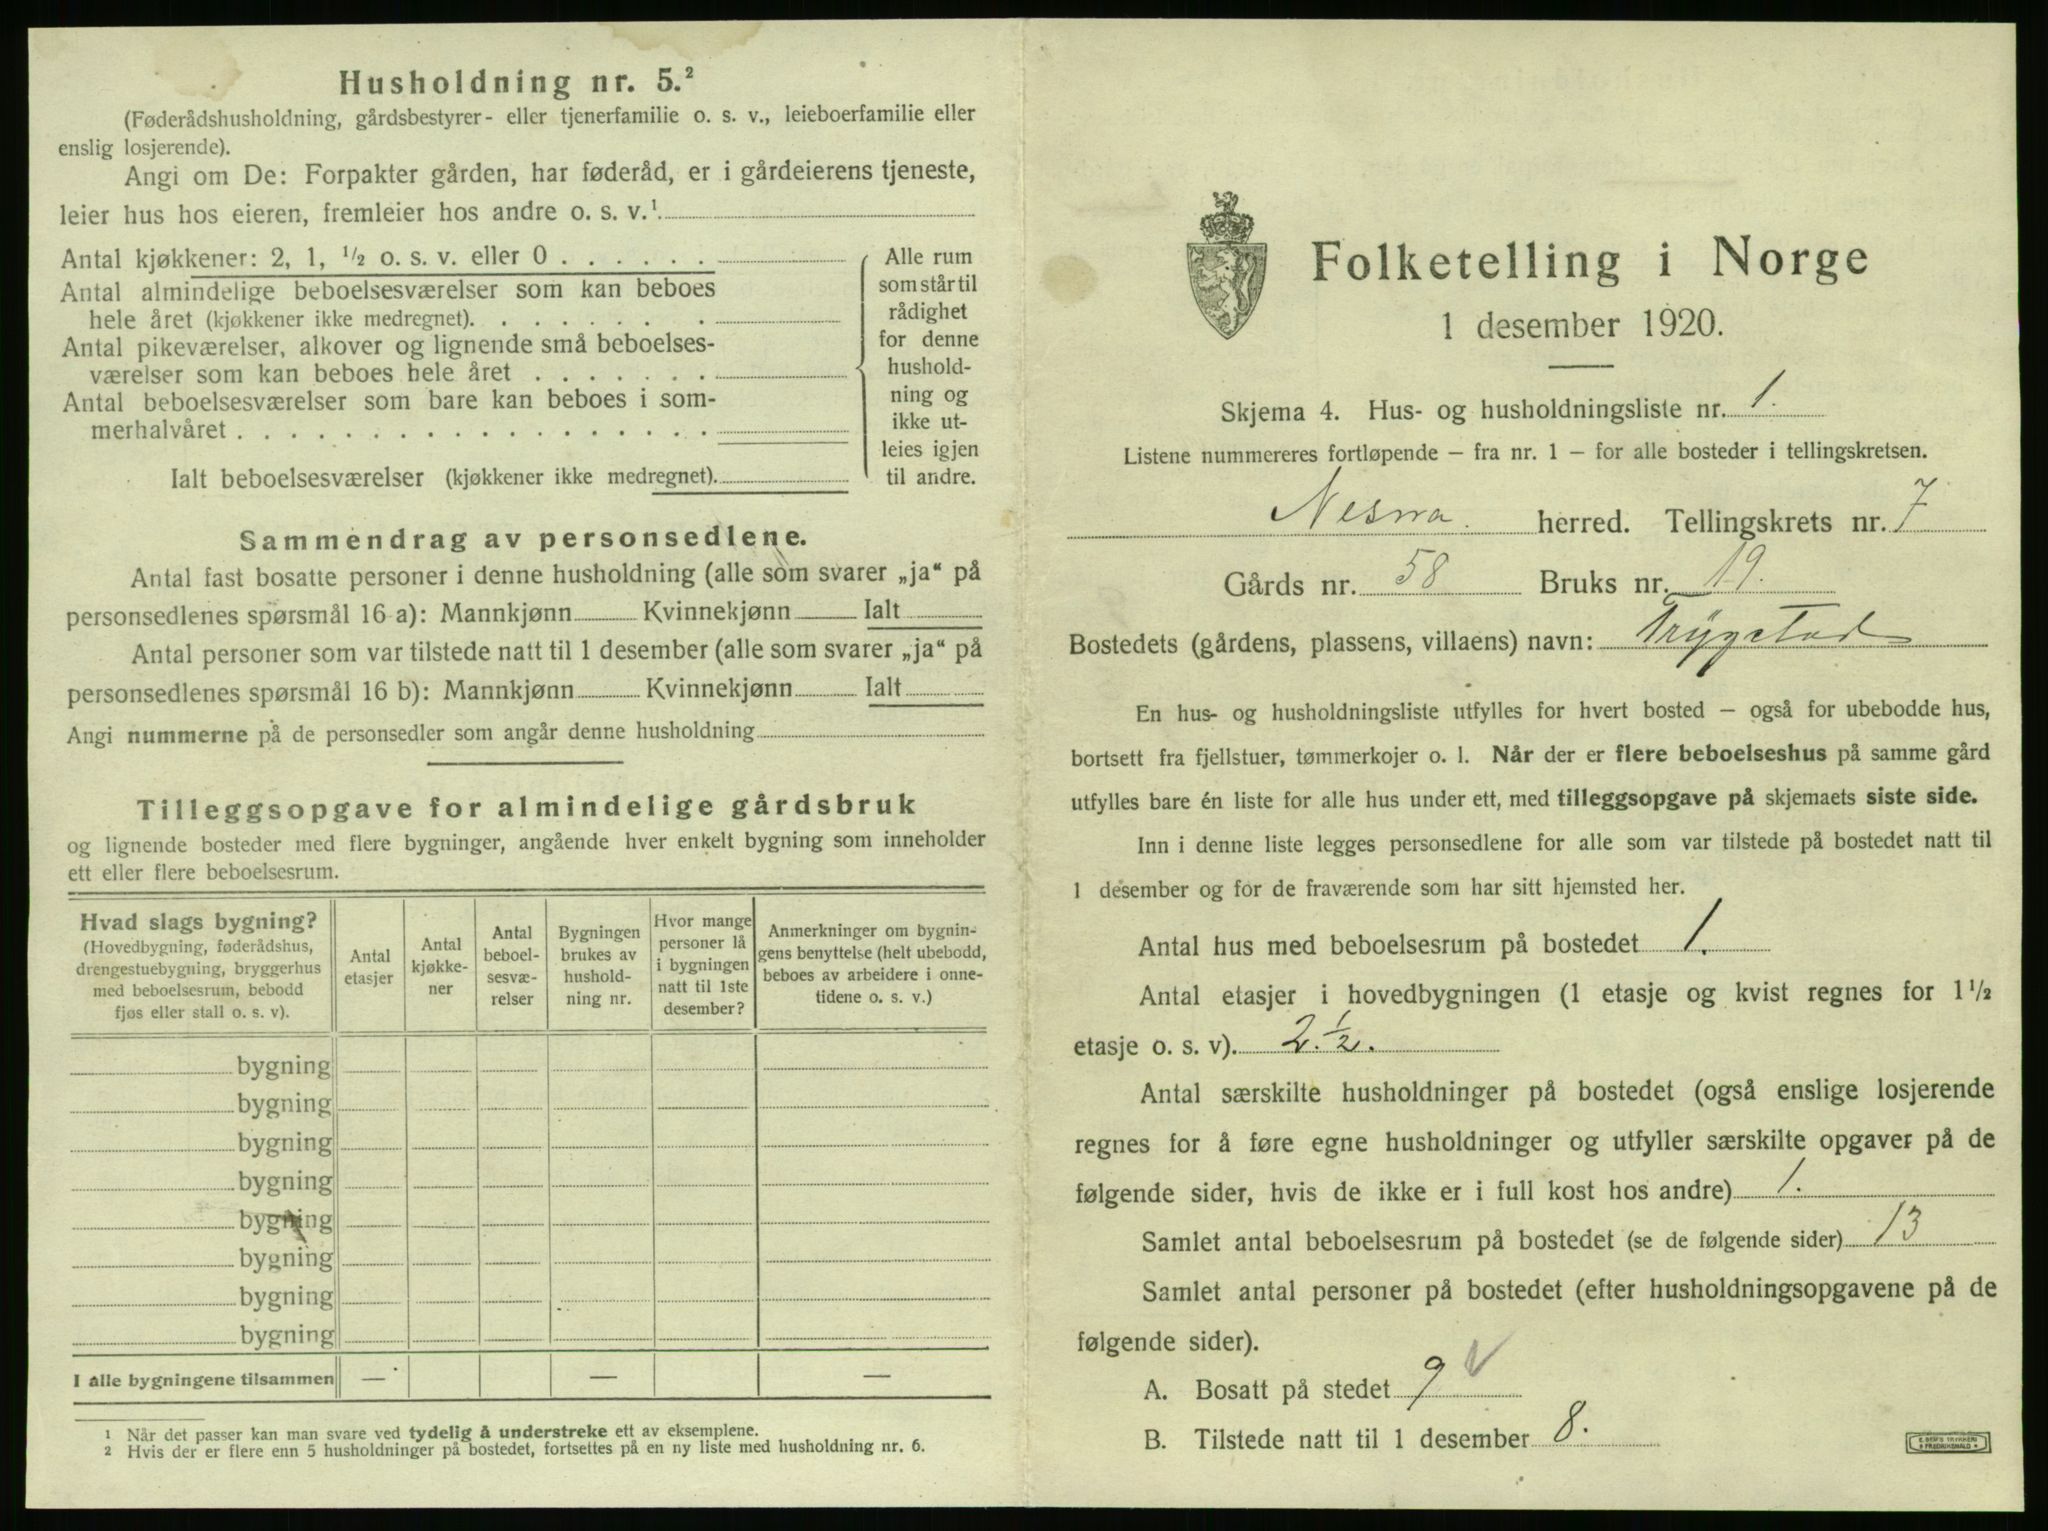 Husholdning nr. 5.²
(Føderådshusholdning, gårdsbestyrer- eller tjenerfamilie o. s. v., leieboerfamilie eller
enslig losjerende).
Angi om De: Forpakter gården, har føderåd, er i gårdeierens tjeneste,
leier hus hos eieren, fremleier hos andre o. s. v.¹
Antal kjøkkener: 2, 1, ½ o. s. v. eller 0 . . . . . .
Antal almindelige beboelsesværelser som kan beboes
hele året (kjøkkener ikke medregnet). . . . . . . .
Antal pikeværelser, alkover og lignende små beboelses-
værelser som kan beboes hele året . . . . . . .
Antal beboelsesværelser som bare kan beboes i som-
merhalvåret . . . . . . . . . . . . . . . . . .
Ialt beboelsesværelser (kjøkkener ikke medregnet).
Alle rum
som står til
rådighet
for denne
hushold-
ning og
ikke ut-
leies igjen
til andre.
Sammendrag av personsedlene.
Antal fast bosatte personer i denne husholdning (alle som svarer „ja“ på
personsedlenes spørsmål 16 a): Mannkjønn Kvinnekjønn Ialt
Antal personer som var tilstede natt til 1 desember (alle som svarer „ja“ på
personsedlenes spørsmål 16 b): Mannkjønn Kvinnekjønn Ialt
Angi nummerne på de personsedler som angår denne husholdning
Tilleggsopgave for almindelige gårdsbruk
og lignende bosteder med flere bygninger, angående hver enkelt bygning som inneholder
ett eller flere beboelsesrum.
Hvad slags bygning?
(Hovedbygning, føderådshus,
drengestuebygning, bryggerhus
med beboelsesrum, bebodd
fjøs eller stall o. s. v).
Antal
etasjer
Antal
kjøkke-
ner
Antal
beboel-
sesvæ-
relser
Bygningen
brukes av
hushold-
ning nr.
Hvor mange
personer lå
i bygningen
natt til 1ste
desember?
Anmerkninger om bygnin-
gens benyttelse (helt ubebodd,
beboes av arbeidere i onne-
tidene o. s. v.)
bygning
bygning
bygning
bygning
bygning
bygning
bygning
bygning
I alle bygningene tilsammen — — —
¹ Når det passer kan man svare ved tydelig å understreke ett av eksemplene.
² Hvis der er flere enn 5 husholdninger på bostedet, fortsettes på en ny liste med husholdning nr. 6.
Folketelling i Norge
1 desember 1920.
Skjema 4. Hus- og husholdningsliste nr. 1.
Listene nummereres fortløpende – fra nr. 1 – for alle bosteder i tellingskretsen.
Nesna. herred. Tellingskrets nr. 7
Gårds nr. 58 Bruks nr. 19.
Bostedets (gårdens, plassens, villaens) navn: Trygstad
En hus- og husholdningsliste utfylles for hvert bosted – også for ubebodde hus,
bortsett fra fjellstuer, tømmerkojer o. l. Når der er flere beboelseshus på samme gård
utfylles bare én liste for alle hus under ett, med tilleggsopgave på skjemaets siste side.
Inn i denne liste legges personsedlene for alle som var tilstede på bostedet natt til
1 desember og for de fraværende som har sitt hjemsted her.
Antal hus med beboelsesrum på bostedet 1.
Antal etasjer i hovedbygningen (1 etasje og kvist regnes for 1½
etasje o. s. v). 2.½.
Antal særskilte husholdninger på bostedet (også enslige losjerende
regnes for å føre egne husholdninger og utfyller særskilte opgaver på de
følgende sider, hvis de ikke er i full kost hos andre) 1.
Samlet antal beboelsesrum på bostedet (se de følgende sider) 13
Samlet antal personer på bostedet (efter husholdningsopgavene på de
følgende sider).
A. Bosatt på stedet 9 V
B. Tilstede natt til 1 desember 8.
E. SEM'S TRYKKERI
FREDRIKSHALD